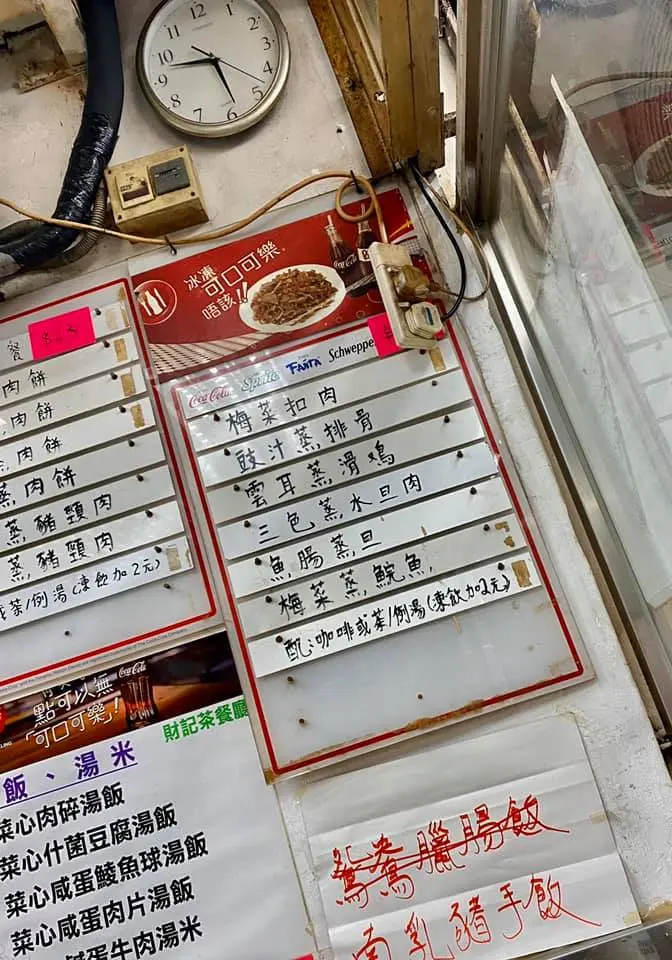 12
1
2
3
4
5
6
7
8
9
10
11
冰凍
可口可樂®
唔該!!
Coca-Cola
Coca-Cola Sprite FANTA Schweppes
餐
肉餅
肉餅
肉餅
蒸肉餅
蒸豬頸肉
蒸豬頸肉
或茶/例湯(凍飲加2元)
梅菜扣肉
豉汁蒸排骨
雲耳蒸滑鸡
三色蒸水旦肉
魚腸蒸旦
梅菜蒸鯇魚
配:咖啡或茶/例湯(凍飲加2元)
點可以無
「可口可樂」!
Coca-Cola
財記茶餐廳
飯、湯米
菜心肉碎湯飯
菜心什菌豆腐湯飯
菜心咸蛋鯪魚球湯飯
菜心咸蛋肉片湯飯
鹹蛋牛肉湯米
鴛鴦臘腸飯
南乳豬手飯